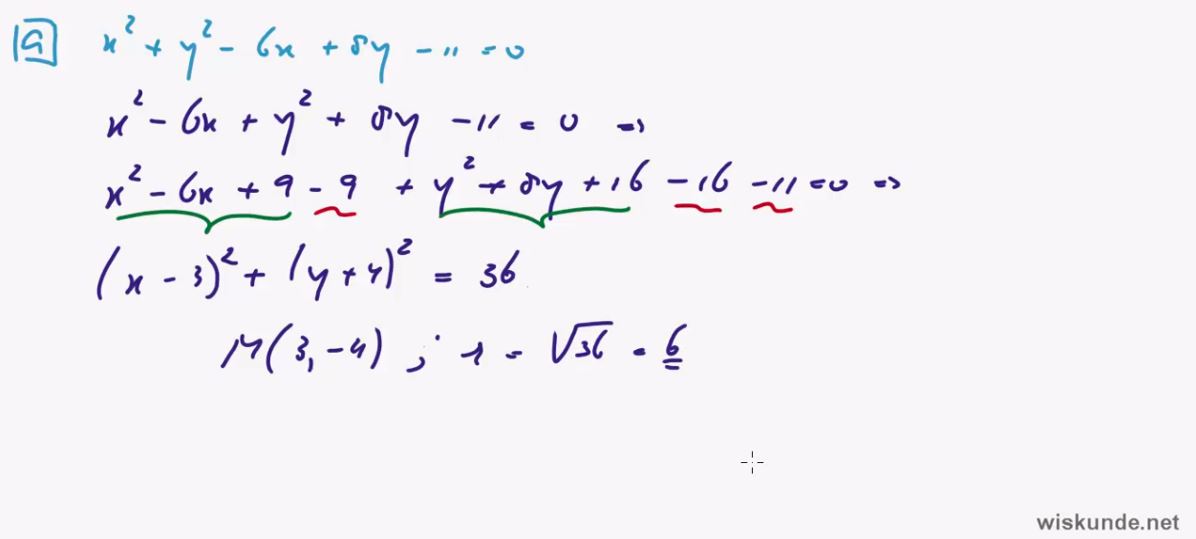 a x² + y² - 6x + 8y - 11 = 0
x² - 6x + y² + 8y - 11 = 0 ⇒
x² - 6x + 9 - 9 + y² + 8y + 16 - 16 - 11 = 0 ⇒
(x - 3)² + (y + 4)² = 36
M(3, -4) ; r = √36 = 6
wiskunde.net